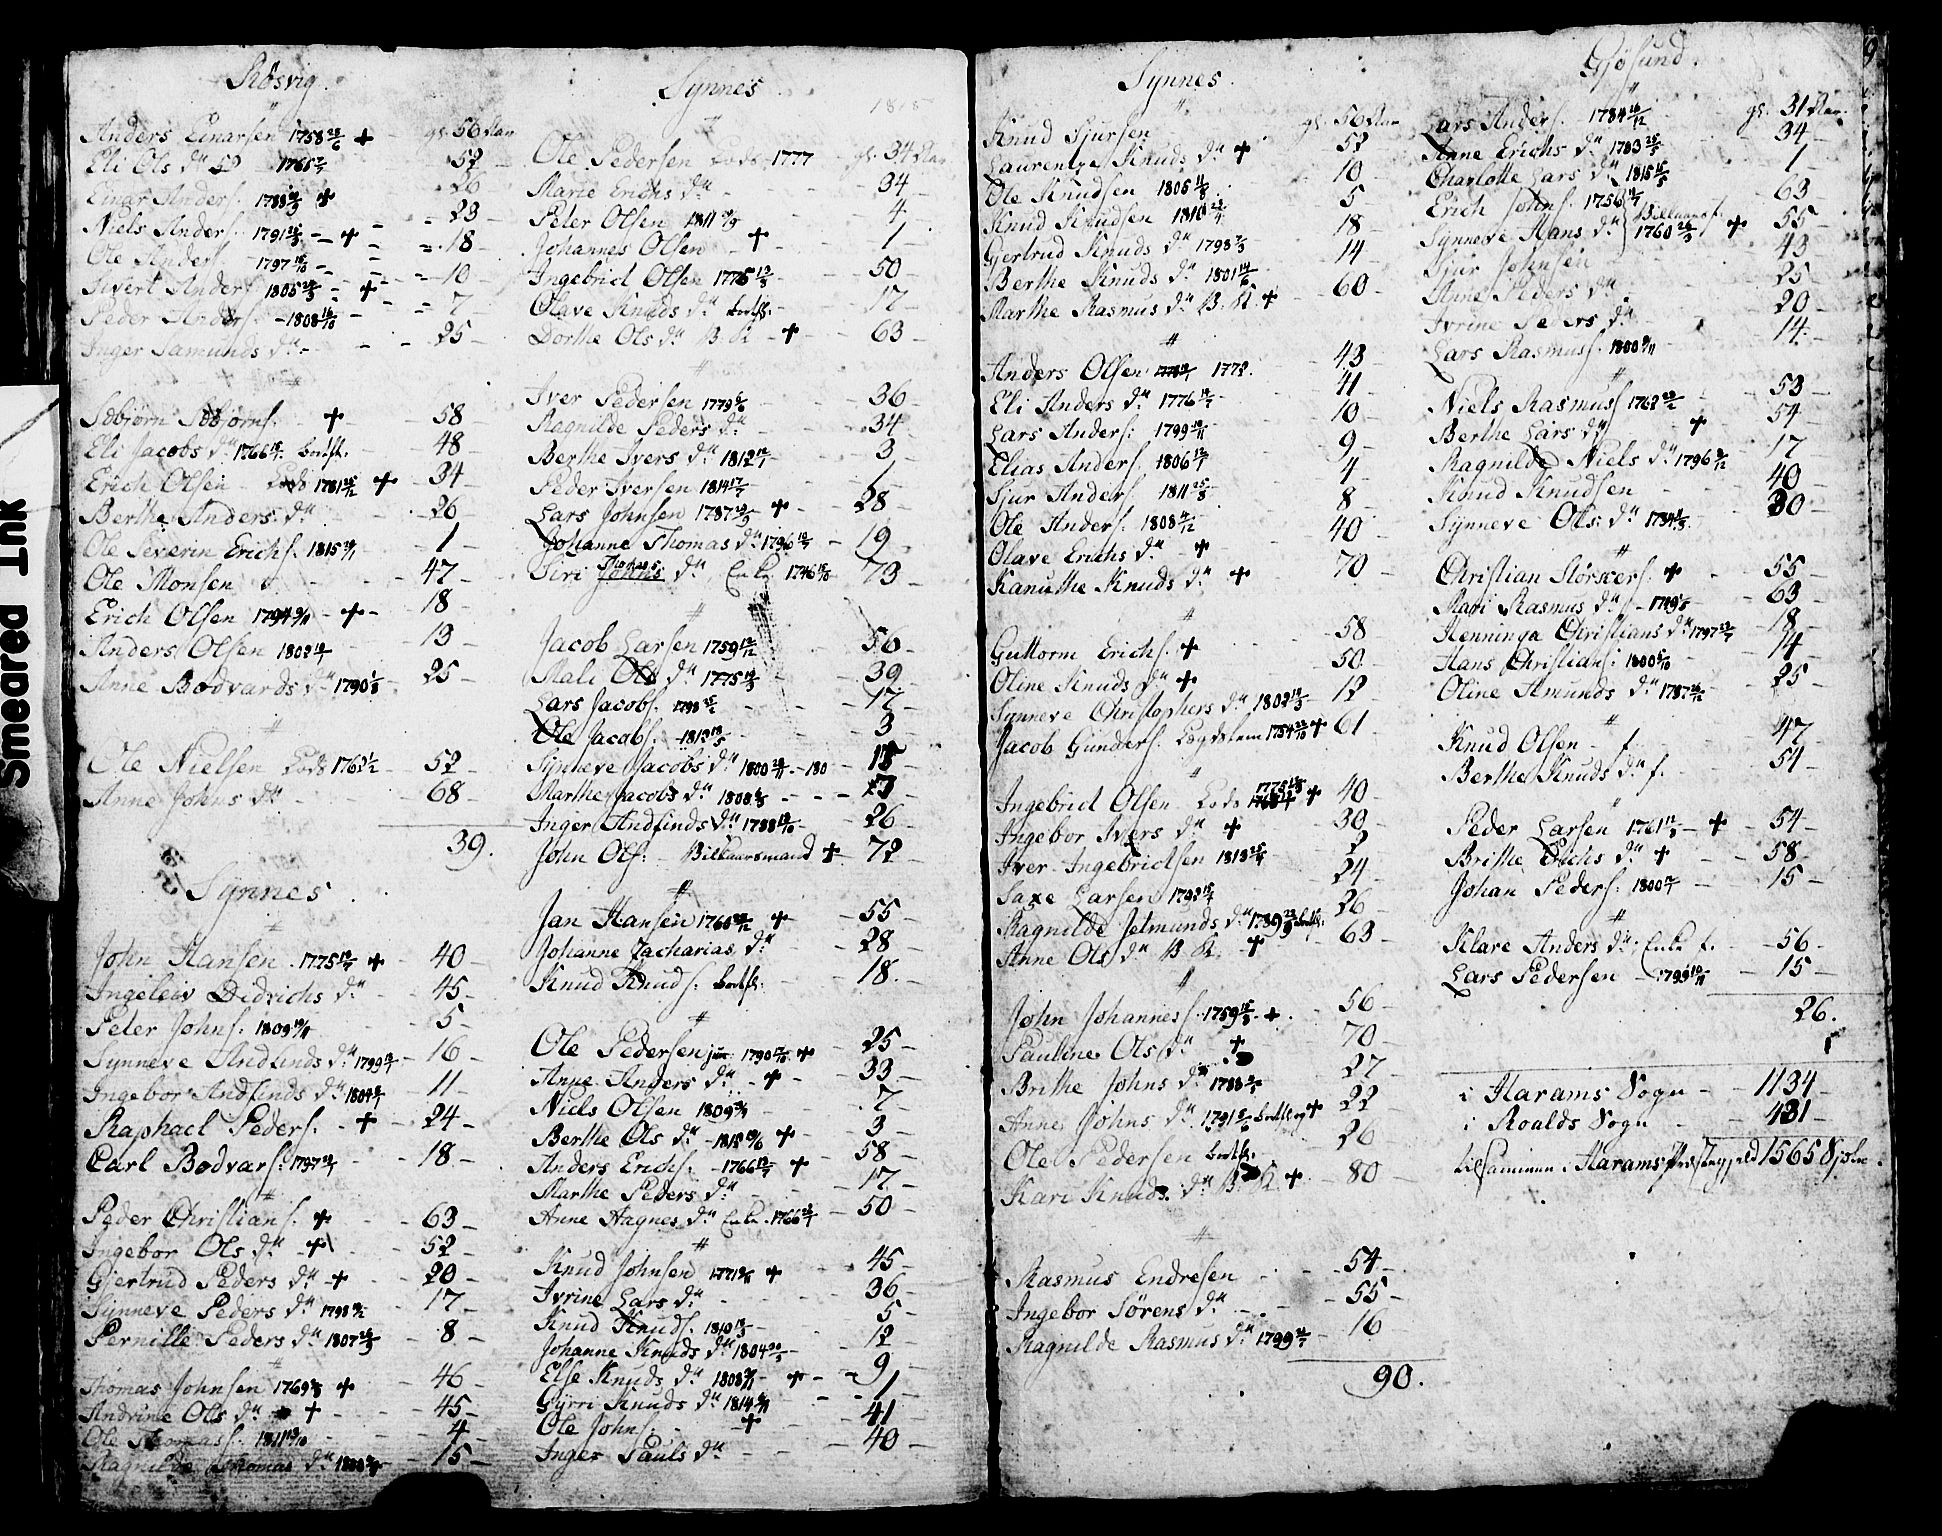 Røsvig.
Anders Einarsen 1758 + gl. 56 Aar
Eli Ols dr 1765 52
Einar Anders. 1788 + 26
Niels Anders. 1791 + 23
Ole Anders. 1797 18
Sivert Anders. 1805 + 10
Peder Anders. 1808 7
Inger Samunds dr 25
Sæbjørn Sæbjørns. + 58
Eli Jacobs dr 1766 48
Erich Olsen Lods 1781 + 34
Berthe Anders dr 26
Ole Severin Erichs. 1815 1
Ole Monsen 47
Erich Olsen 1794 + 18
Anders Olsen 13
Anne Bodvards dr 1790 25
Ole Nielsen Lods 52
Anne Johns dr 68
39.
Synnes
John Hansen 1775 + 40
Ingeleiv Didrichs dr 45
Peter Johns. 1809 5
Synneve Andfinds dr 1799 16
Ingebor Andfinds dr 1804 11
Raphael Peders. + 24
Carl Bodvars. 1797 18
Peder Christians. + 63
Ingebor Ols dr + 52
Giertrud Peders dr + 20
Synneve Peders dr 1798 17
Pernille Peders dr 1807 8
Thomas Johnsen 1769 + 46
Andrine Ols dr + 45
Ole Thomass. 1811 4
Ragnilde Thomas dr 15
Synnes
Ole Pedersen Lods 1777 gl. 34 Aar
Marie Erichs dr 34
Peter Olsen 1811 4
Johannes Olsen + 1
Ingebrict Olsen 1775 50
Olave Knuds dr 17
Dorthe Ols dr + 63
Iver Pedersen 1779 36
Ragnilde Peders dr 34
Berthe Ivers dr 1812 3
Peder Iversen 1814 1
Lars Johnsen 1787 + 28
Johanne Thomas dr 1796 19
Siri Thomas Johns dr Enke 1746 73
Jacob Larsen 1759 56
Mali Ols dr 1775 39
Lars Jacobs. 1798 17
Ole Jacobs. 1813 3
Synneve Jacobs dr 1800
Marthe Jacobs dr 1808
Inger Andfinds dr 1788 26
John Ols. Bilkaarsmand + 72
Jan Hansen 1760 + 55
Johanne Zacharias dr 28
Knud Knuds. 18
Ole Pedersen jun: 1790 + 25
Anne Anders dr + 33
Niels Olsen 1809 7
Berthe Ols dr + 3
Anders Erichs. 1766 + 58
Marthe Peders dr 17
Anne Hagnes dr Enke 1766 50
Knud Johnsen 1771 + 45
Ivrine Lars dr 36
Knud Knuds. 1810 5
Johanne Knuds dr 1804 12
Else Knuds dr 1808 + 9
Gyrri Knuds dr 1814 1
Ole Johns. + 41
Inger Pauls dr 40
Synnes
Knud Sjursen gl. 56 Aar
Laurentze Knuds dr + 52
Ole Knudsen 1805 10
Knud Knudsen 1810 5
Gjertrud Knuds dr 18
Berthe Knuds dr 1801 14
Marthe Rasmus dr + 60
Anders Olsen 1772 43
Eli Anders dr 1776 41
Lars Anders. 1799 10
Elias Anders. 1806 9
Sjur Anders. 1811 4
Ole Anders. 1808 8
Olave Erichs dr + 40
Kanuthe Knuds dr + 70
Guttorm Erichs. + 58
Oline Knuds dr + 50
Synneve Christophers dr 1802 12
Jacob Gunders. 1754 + 61
Ingebrict Olsen Lods + 40
Ingebor Ivers dr + 30
Iver Ingebrictsen 1813 2
Saxe Larsen 24
Ragnilde Jetmunds dr 26
Anne Ols dr + 63
John Johannes. 1759 + 56
Pauline Ols dr + 70
Brithe Johns dr 1788 27
Anne Johns dr 1791 + 22
Ole Pedersen 26
Kari Knuds dr + 80
Rasmus Endresen 54
Ingebor Sørens dr 55
Ragnilde Rasmus dr 1799 16
90.
Gjøsund.
Lars Anders. 1784 gl. 31 Aar.
Anne Erichs dr 1783 34
Charlotte Lars dr 1815 1
Erich Johns. 1756 63
Synneve Hans dr 1760 + 55
Sjur Johnsen 43
Anne Peders dr 25
Ivrine Peders dr 20
Lars Rasmuss. 1800 14
Niels Rasmuss. 1762 53
Berthe Lars dr + 54
Ragnilde Niels dr 1796 17
Knud Knudsen 40
Synneve Ols dr 30
Christian Størkers. + 55
Mari Rasmus dr 63
Henninga Christians dr 1797 18
Hans Christians. 1800 14
Oline Amunds dr 1787 25
Knud Olsen 47
Berthe Knuds dr 54
Peder Larsen 1761 + 54
Brithe Erichs dr + 58
Johan Peders. 1800 15
Klare Anders dr Enke 56
Lars Pedersen 1799 15
26.
i Harams Sogn 1134
i Roalds Sogn 431
tilsammen i Harams Præstegjeld 1565 Sjæle.
Smeared Ink